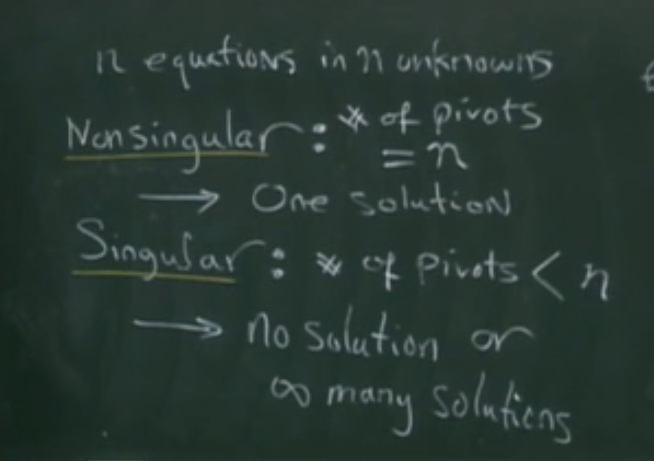 n equations in n unknowns
Nonsingular : # of pivots
= n
→ One solution
Singular : # of pivots < n
→ no solution or
∞ many solutions